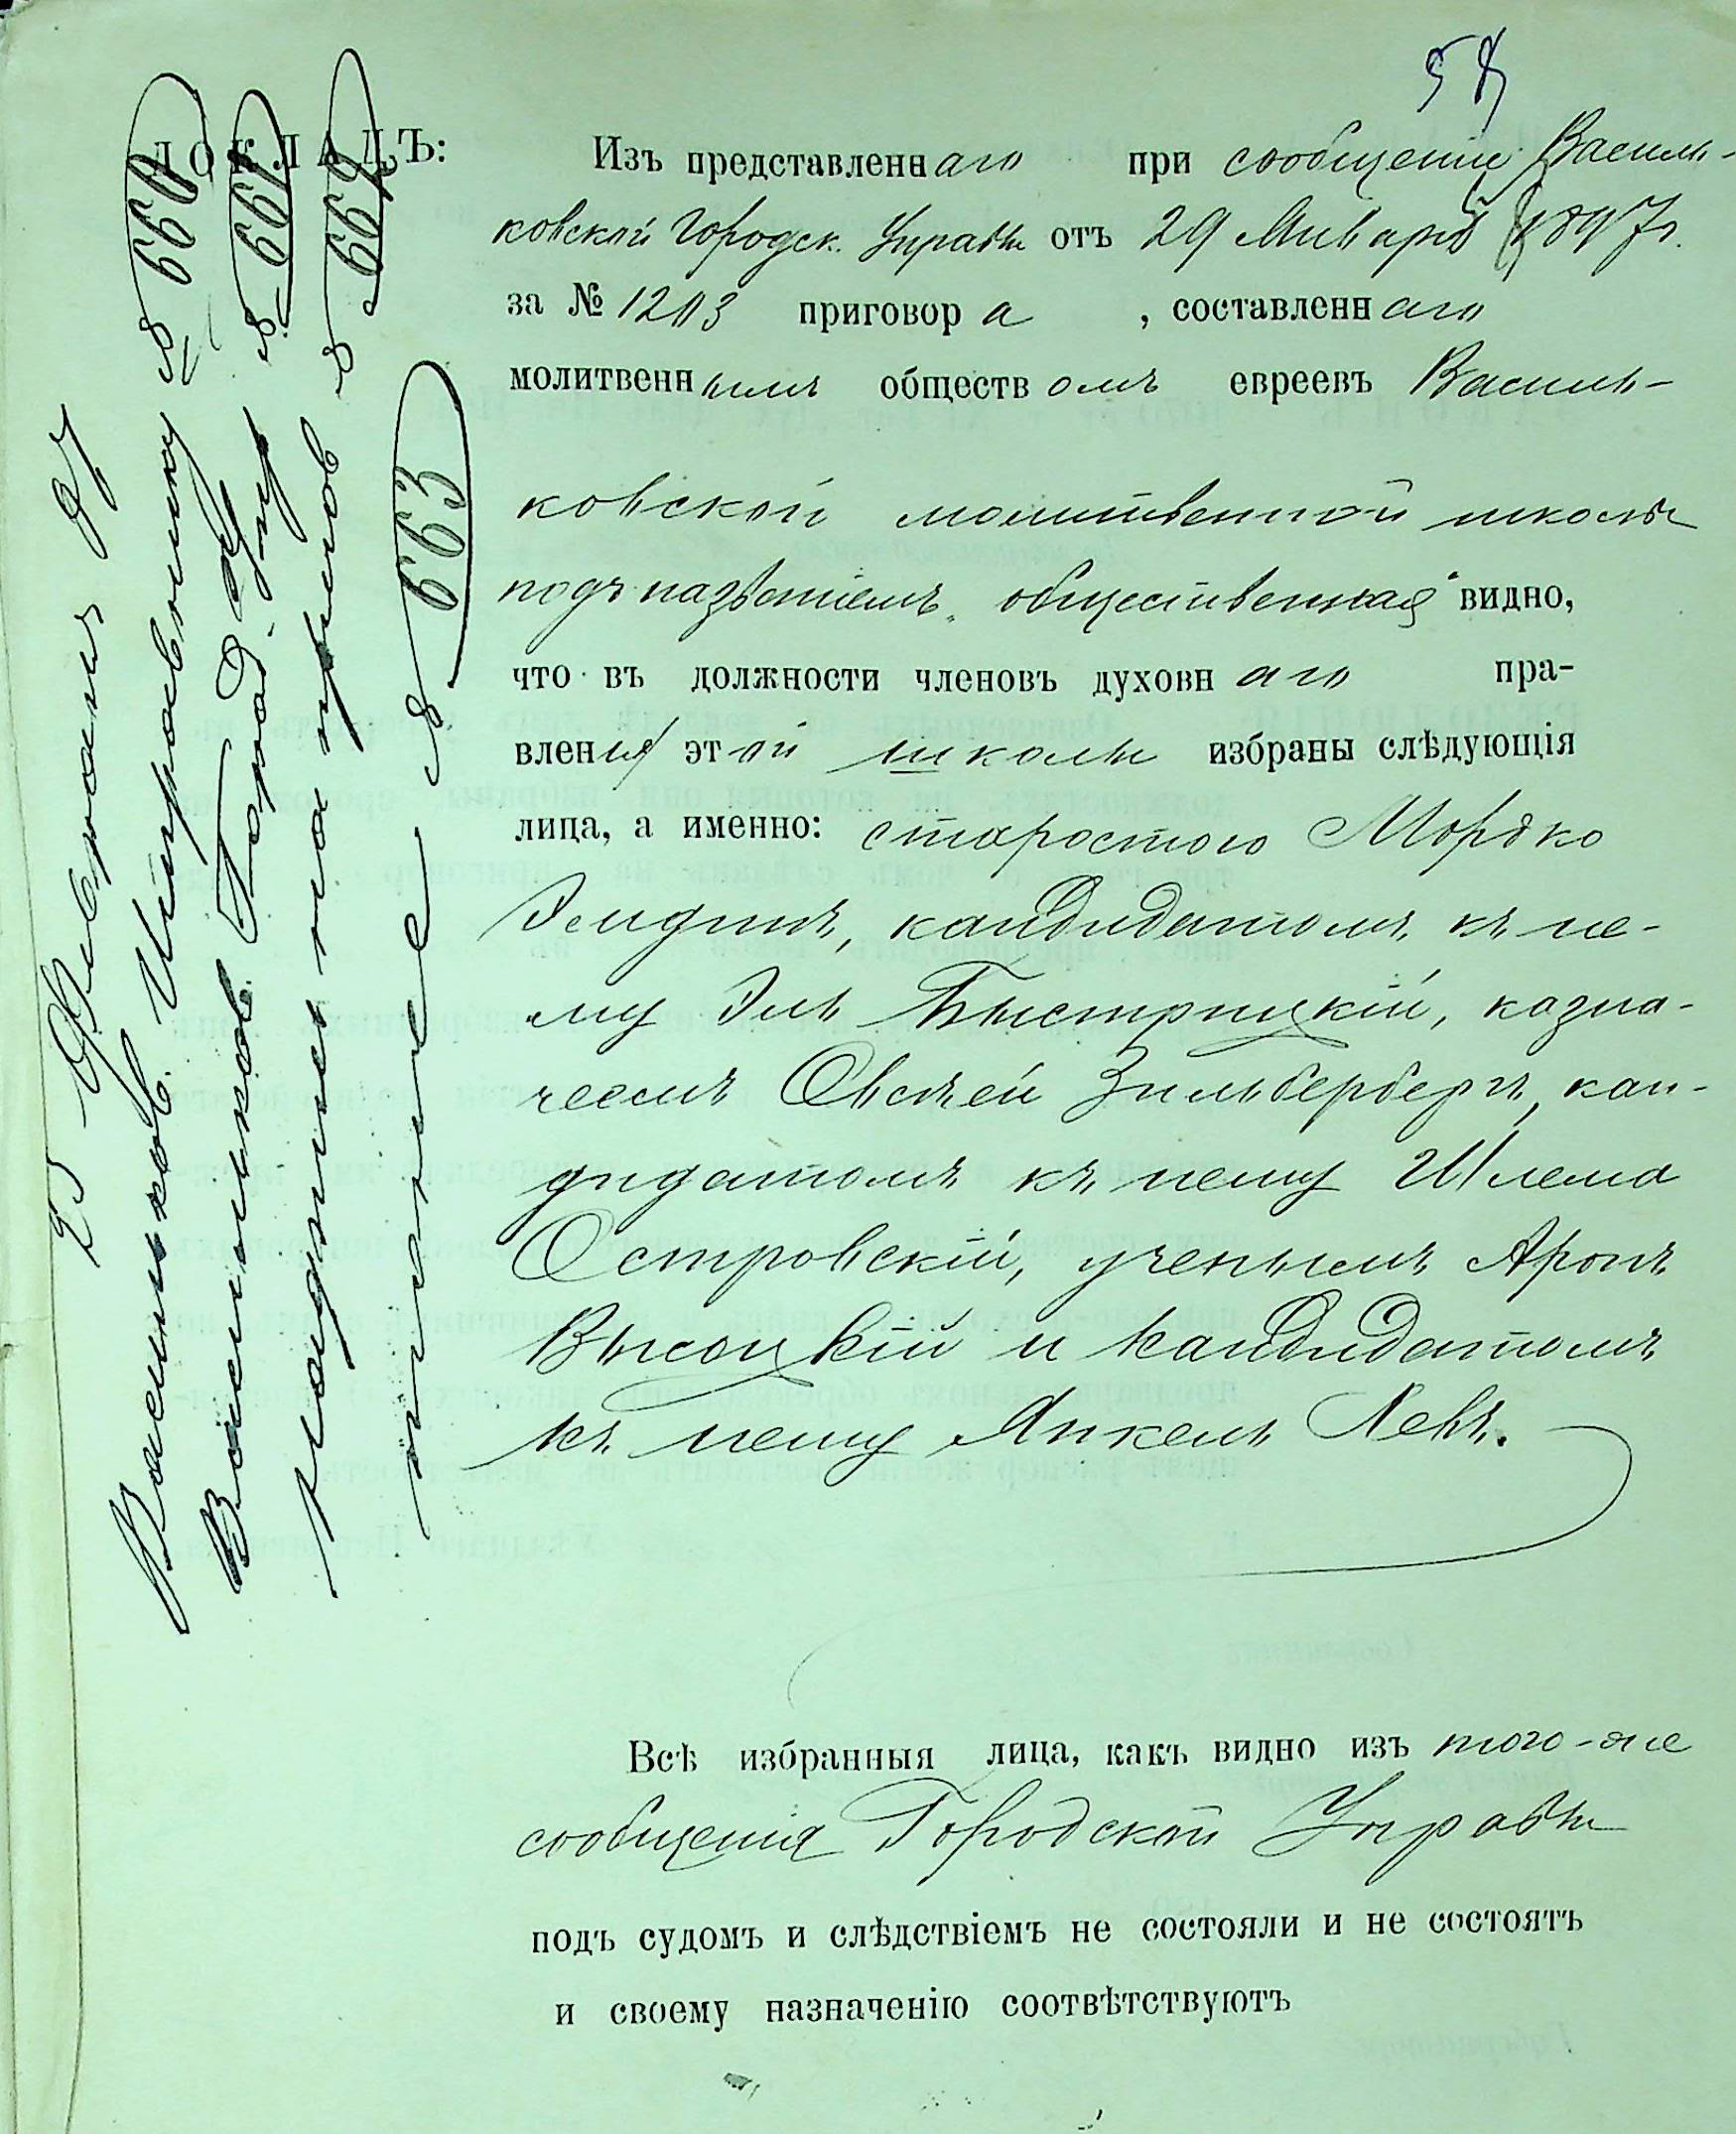 58
ДОКЛАДЪ:
Изъ представленнаго при сообщеніи Василь-
ковской Городск. Управы отъ 29 Января 1897 г.
за № 1203 приговора, составленнаго
молитвеннымъ обществомъ евреевъ Василь-
ковской молитвенной школы
подъ названіемъ „общественная" видно,
что въ должности членовъ духовнаго пра-
вленія этой школы избраны слѣдующія
лица, а именно: старостою Мордко
кандидатомъ къ не-
му Эль Быстрицкій, казна-
чеемъ Овсѣй Зильбербергъ, кан-
дидатомъ къ нему Шлема
Островскій, ученымъ Аронъ
Высоцкій и кандидатомъ
къ нему Янкель Левъ.
Всѣ избранныя лица, какъ видно изъ того-же
сообщенія Городской Управы
подъ судомъ и слѣдствіемъ не состояли и не состоятъ
и своему назначенію соотвѣтствуютъ
25 Февраля 97
Васильков. Исправнику § 660
Васильков. Город. Упр § 661
§ 662
§ 663